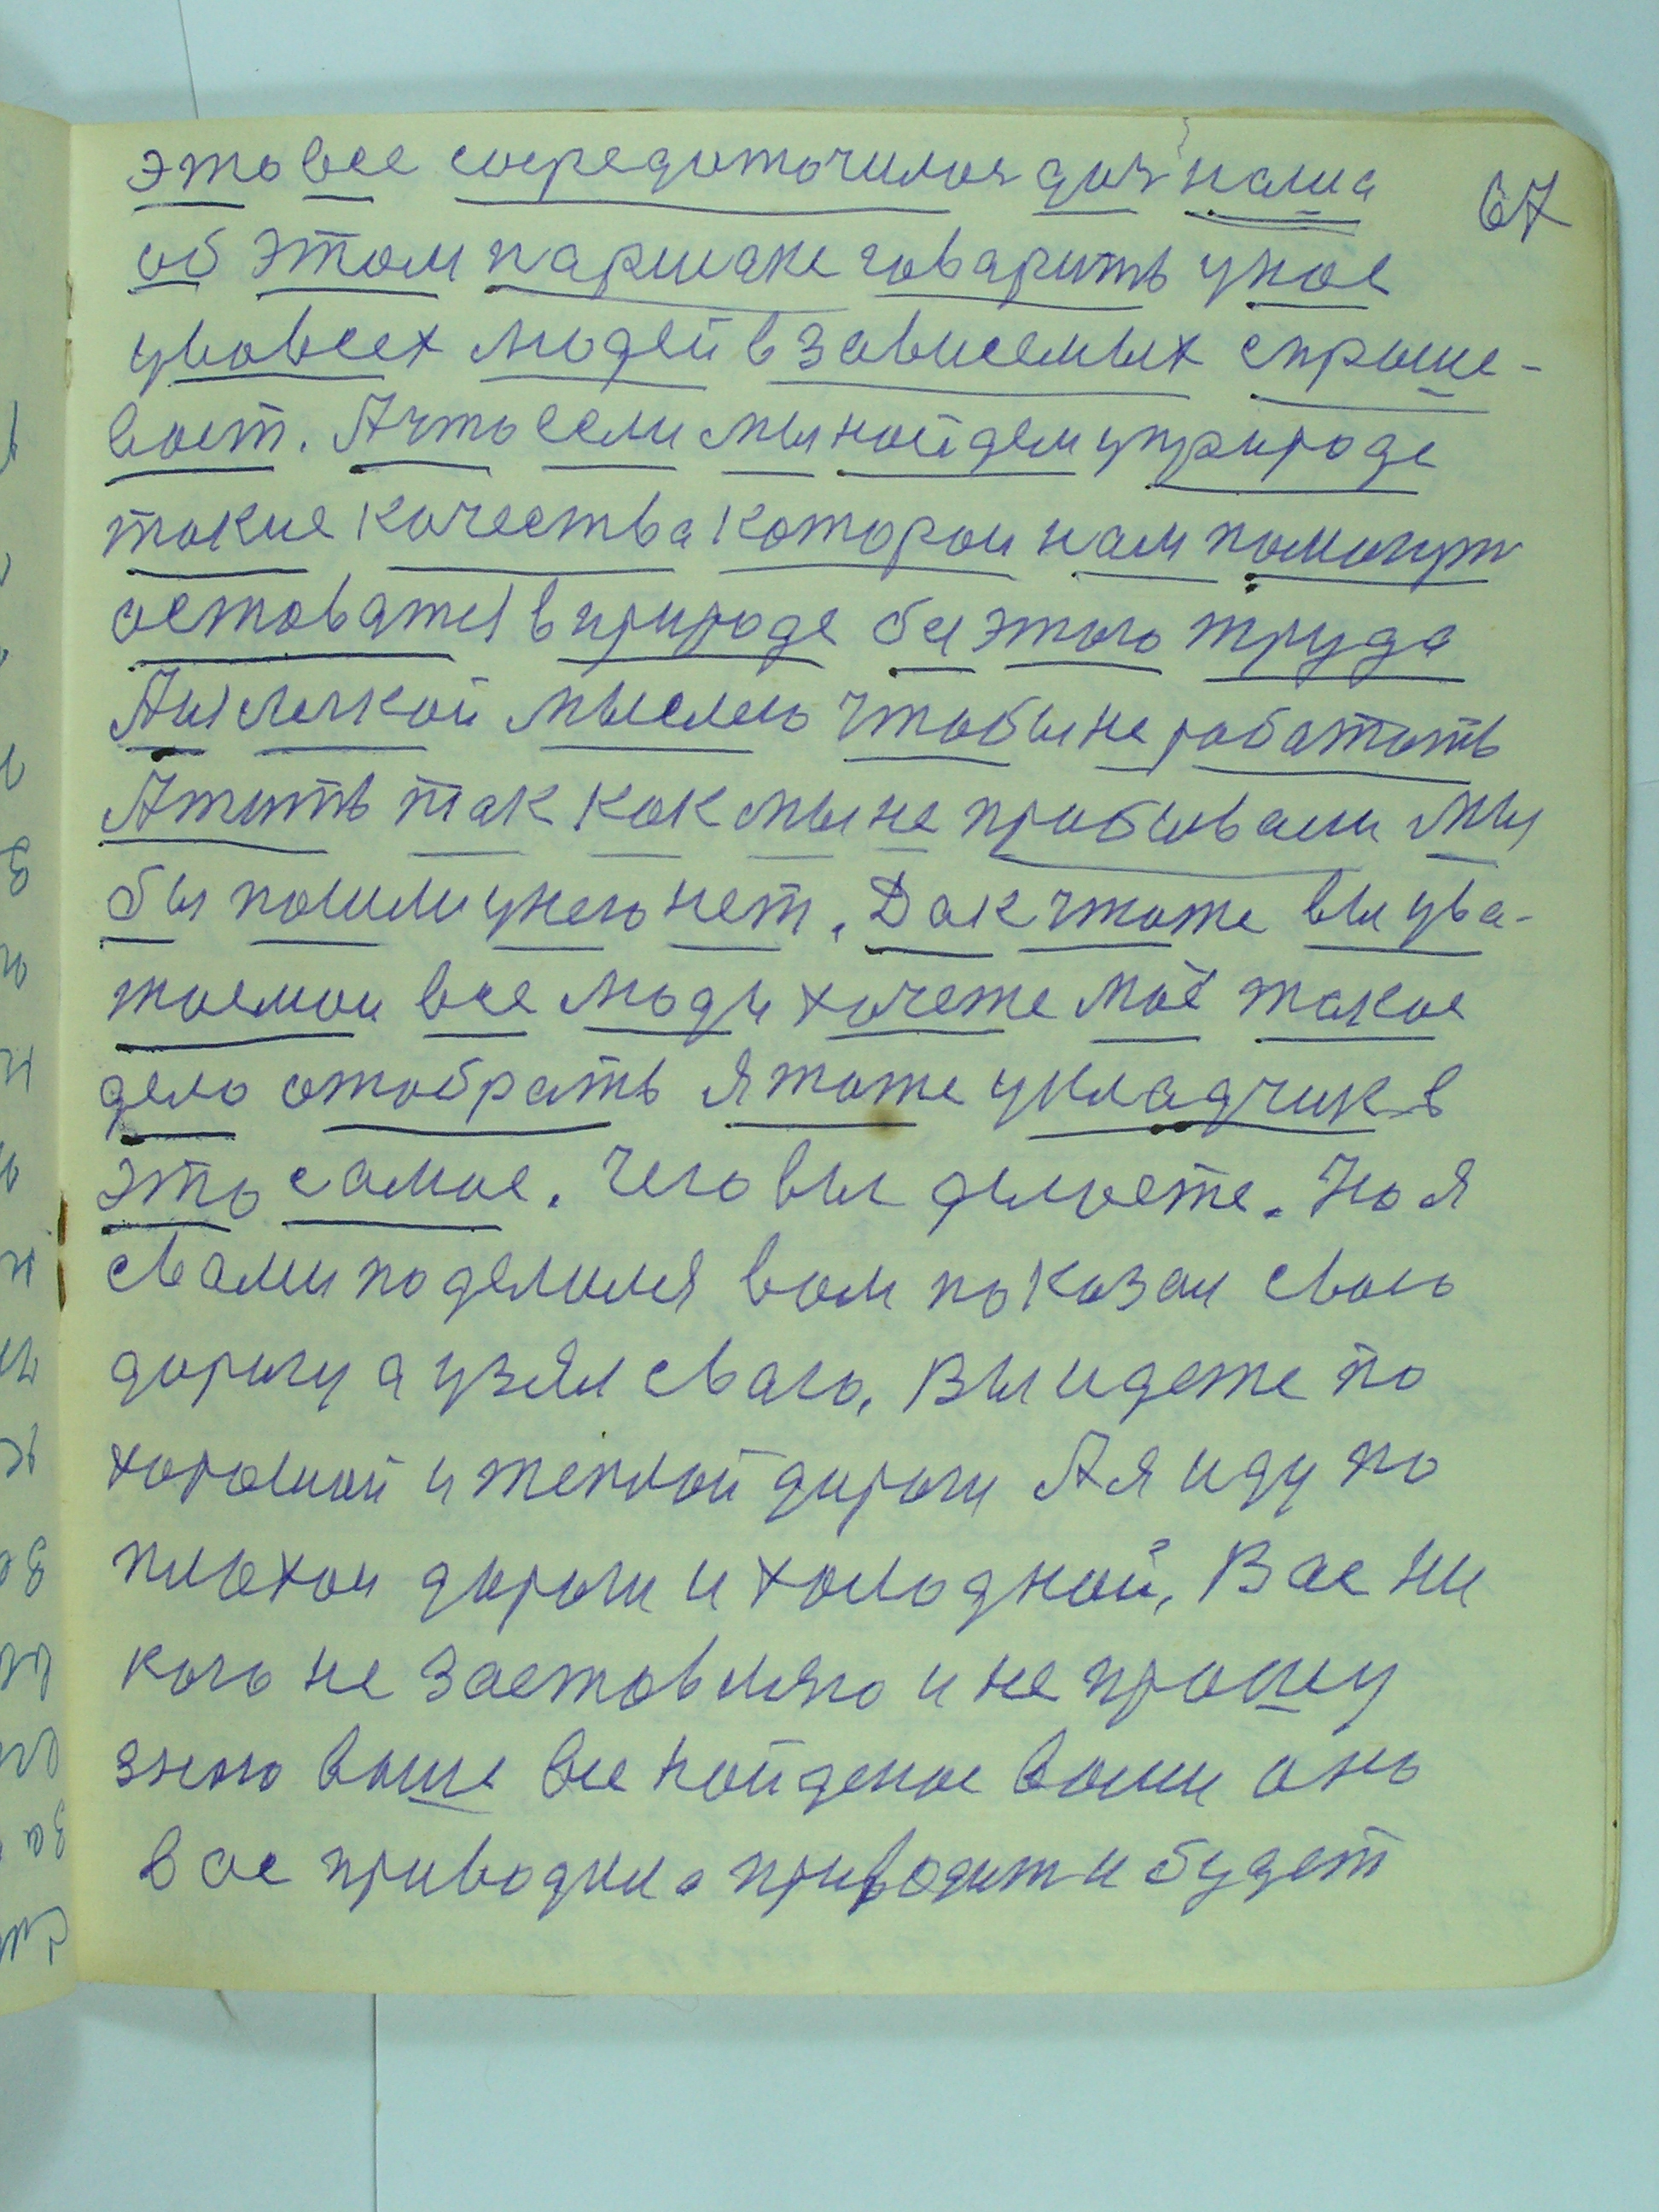 это все сосредоточился для наша
67
об этом паршаке говарить у нас
у вовсех людей взависемых спраше-
вает. А что если мы найдем у природе
такие качества которои нам помогут
оставатся в природе без этого труда
А их легкой мыслею чтобы не работать
А жить так как мы не пробывали мы
бы пошли у него нет. Дак что же вы ува-
жаемои все люди хочете моё такое
дело отобрать я тоже укладчик в
это самое. Чего вы делаете. Но я
с вами поделился вам показал свою
дорогу а узял сваго. Вы идете по
хорошой и теплой дороги А я иду по
плохои дороги и холодной, Вас ни
кого не заставляю и не прошу
знаю ваше все найденое вами оно
вас приводило приводит и будет